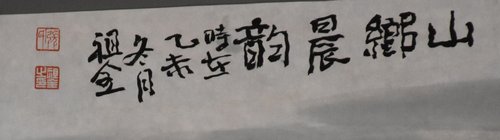 山乡晨韵
時在
乙未
冬月
祖全